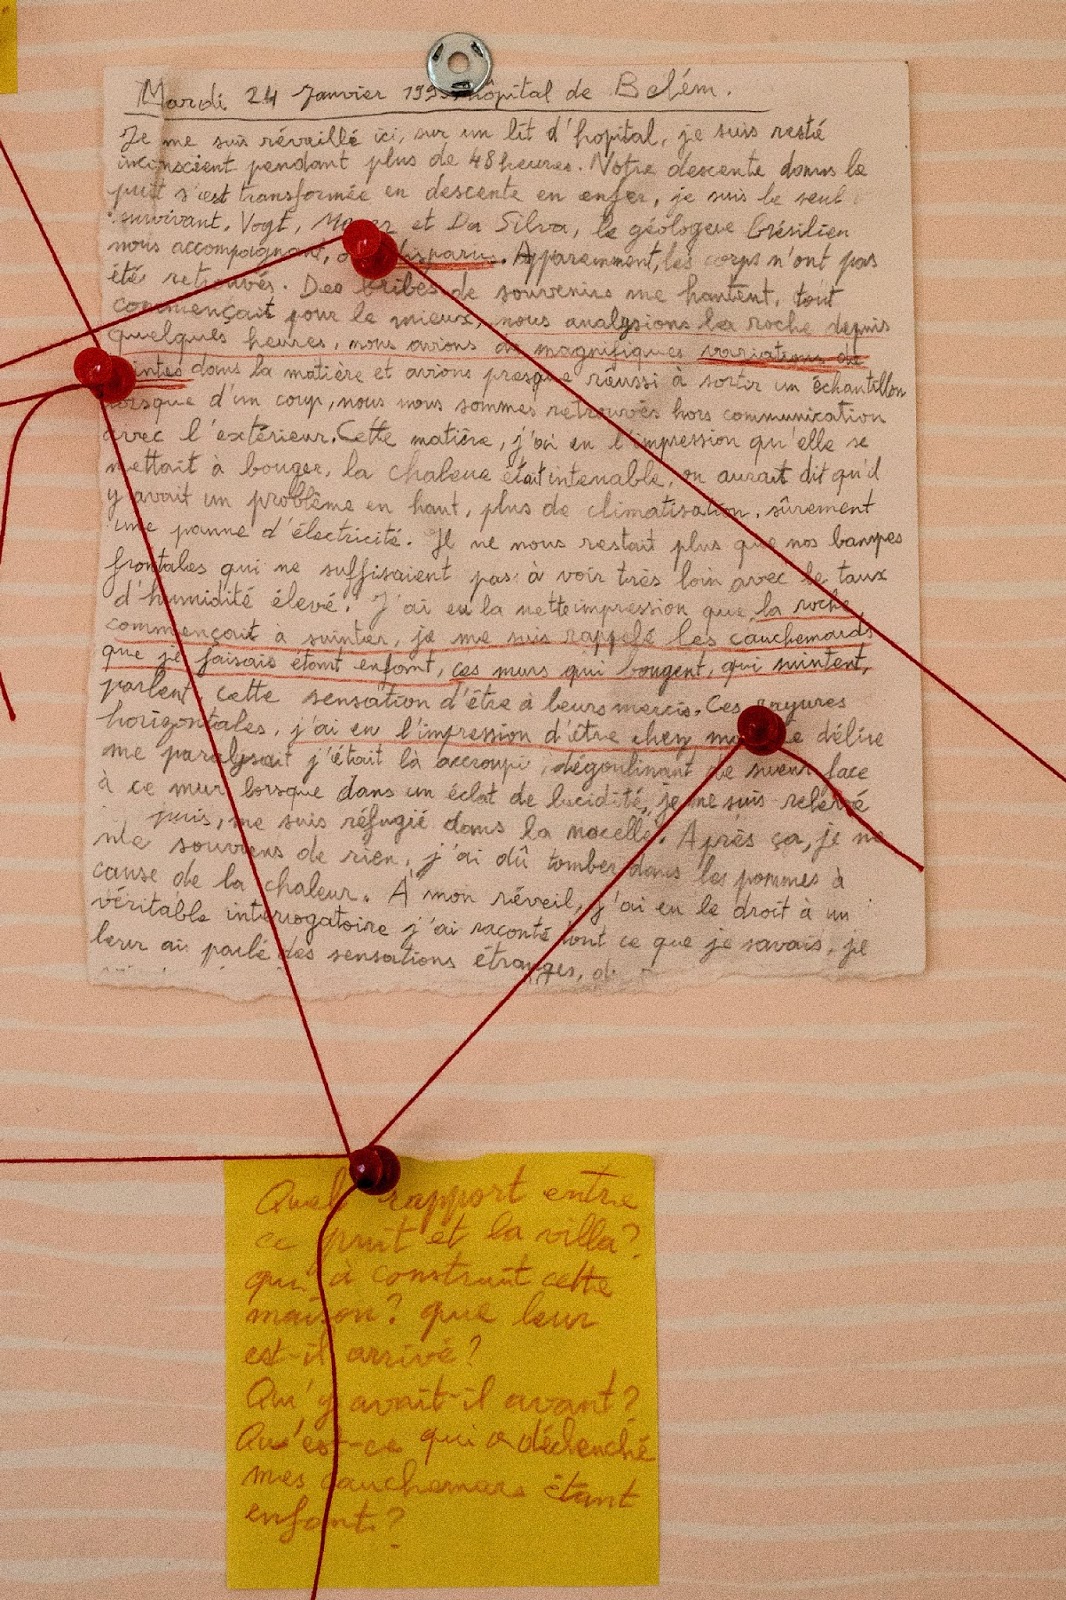 Mardi 24 Janvier 199 hôpital de Belém.
Je me suis révaillé ici, sur un lit d'hopital, je suis resté
inconscient pendant plus de 48 heures. Notre descente dans le
puit s'est transformée en descente en enfer, je suis le seul
survivant, Vogt, et Da Silva, le géologue brésilien
nous accompagnant, disparu. Apparemment, les corps n'ont pas
été retrouvés. Des bribes de souvenirs me hantent, tout
commençait pour le mieux, nous analysions la roche depuis
quelques heures, nous avions de magnifiques variations de
intes dans la matière et avions presque réussi à sortir un échantillon
lorsque d'un coup, nous nous sommes retrouvés hors communication
avec l'extérieur. Cette matière, j'ai eu l'impression qu'elle se
mettait à bouger, la chaleur était intenable, on aurait dit qu'il
y avait un problème en haut, plus de climatisation, sûrement
une panne d'électricité. Il ne nous restait plus que nos lampes
frontales qui ne suffisaient pas à voir très loin avec le taux
d'humidité élevé. J'ai eu la nette impression que la roche
commençait à suinter, je me suis rappelé les cauchemards
que je faisais étant enfant, ces murs qui bougent, qui suintent,
parlent, cette sensation d'être à leurs mercis. Ces rayures
horizontales, j'ai eu l'impression d'être chez mo e délire
me paralysait j'était là accroupi, dégoulinant de sueur face
à ce mur lorsque dans un éclat de lucidité, je me suis relevé
puis, me suis réfugié dans la nacelle. Après ça, je ne
me souviens de rien, j'ai dû tomber dans les pommes à
cause de la chaleur. À mon réveil, j'ai eu le droit à un
véritable interrogatoire j'ai raconté tout ce que je savais, je
leur ai parlé des sensations étranges, d
Quel rapport entre
ce puit et la villa?
qui à construit cette
maison? que leur
est-il arrivé?
Qu'y avait-il avant?
Qu'est-ce qui a déclenché
mes cauchemars étant
enfant?